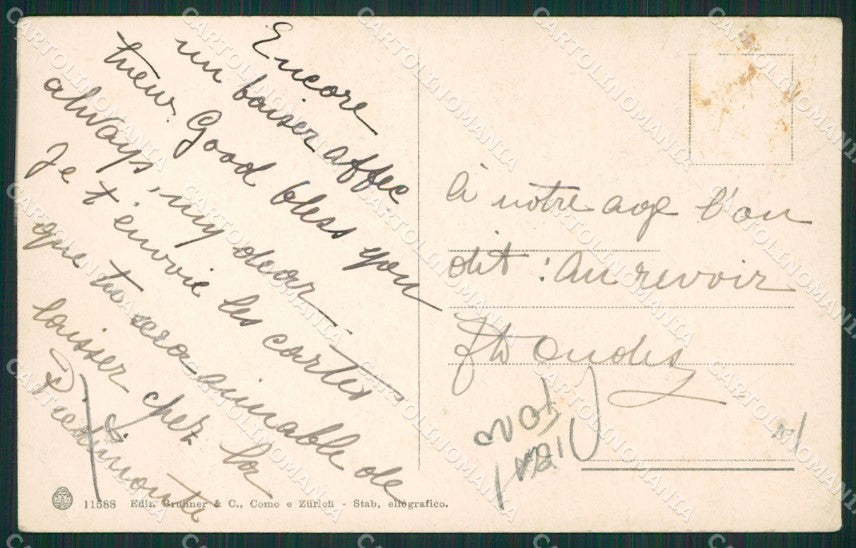 Encore
un baiser affec
tueux. Good bless you
always, my dear.
Je t'envoie les cartes
que tu sera aimable de
laisser chez la
Piedimonte
à notre age l'on
dit : Au revoir
11588 Edit. Brunner & C., Como e Zürich - Stab. eliografico.
CARTOLINOMANIA